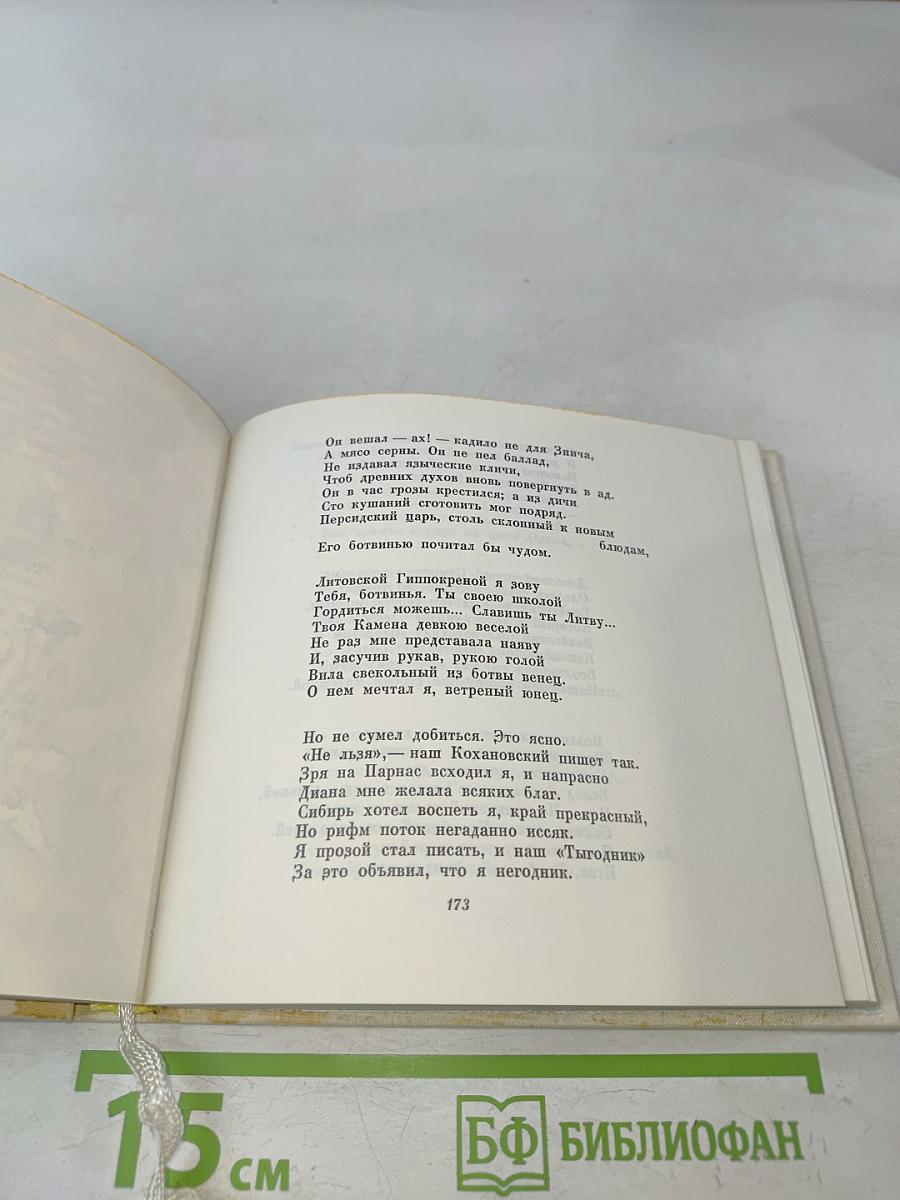 Он вешал — ах! — кадило не для Знича,
А мясо серны. Он не пел баллад,
Не издавал языческие кличи,
Чтоб древних духов вновь повергнуть в ад.
Он в час грозы крестился; а из дичи
Сто кушаний сготовить мог подряд.
Персидский царь, столь склонный к новым
блюдам,
Его ботвинью почитал бы чудом.
Литовской Гиппокреной я зову
Тебя, ботвинья. Ты своею школой
Гордиться можешь... Славишь ты Литву...
Твоя Камена девкою веселой
Не раз мне представала наяву
И, засучив рукав, рукою голой
Вила свекольный из ботвы венец.
О нем мечтал я, ветреный юнец.
Но не сумел добиться. Это ясно.
«Не льзя»,— наш Кохановский пишет так.
Зря на Парнас всходил я, и напрасно
Диана мне желала всяких благ.
Сибирь хотел воспеть я, край прекрасный,
Но рифм поток негаданно иссяк.
Я прозой стал писать, и наш «Тыгодник»
За это объявил, что я негодник.
173
15 см
БФ БИБЛИОФАН